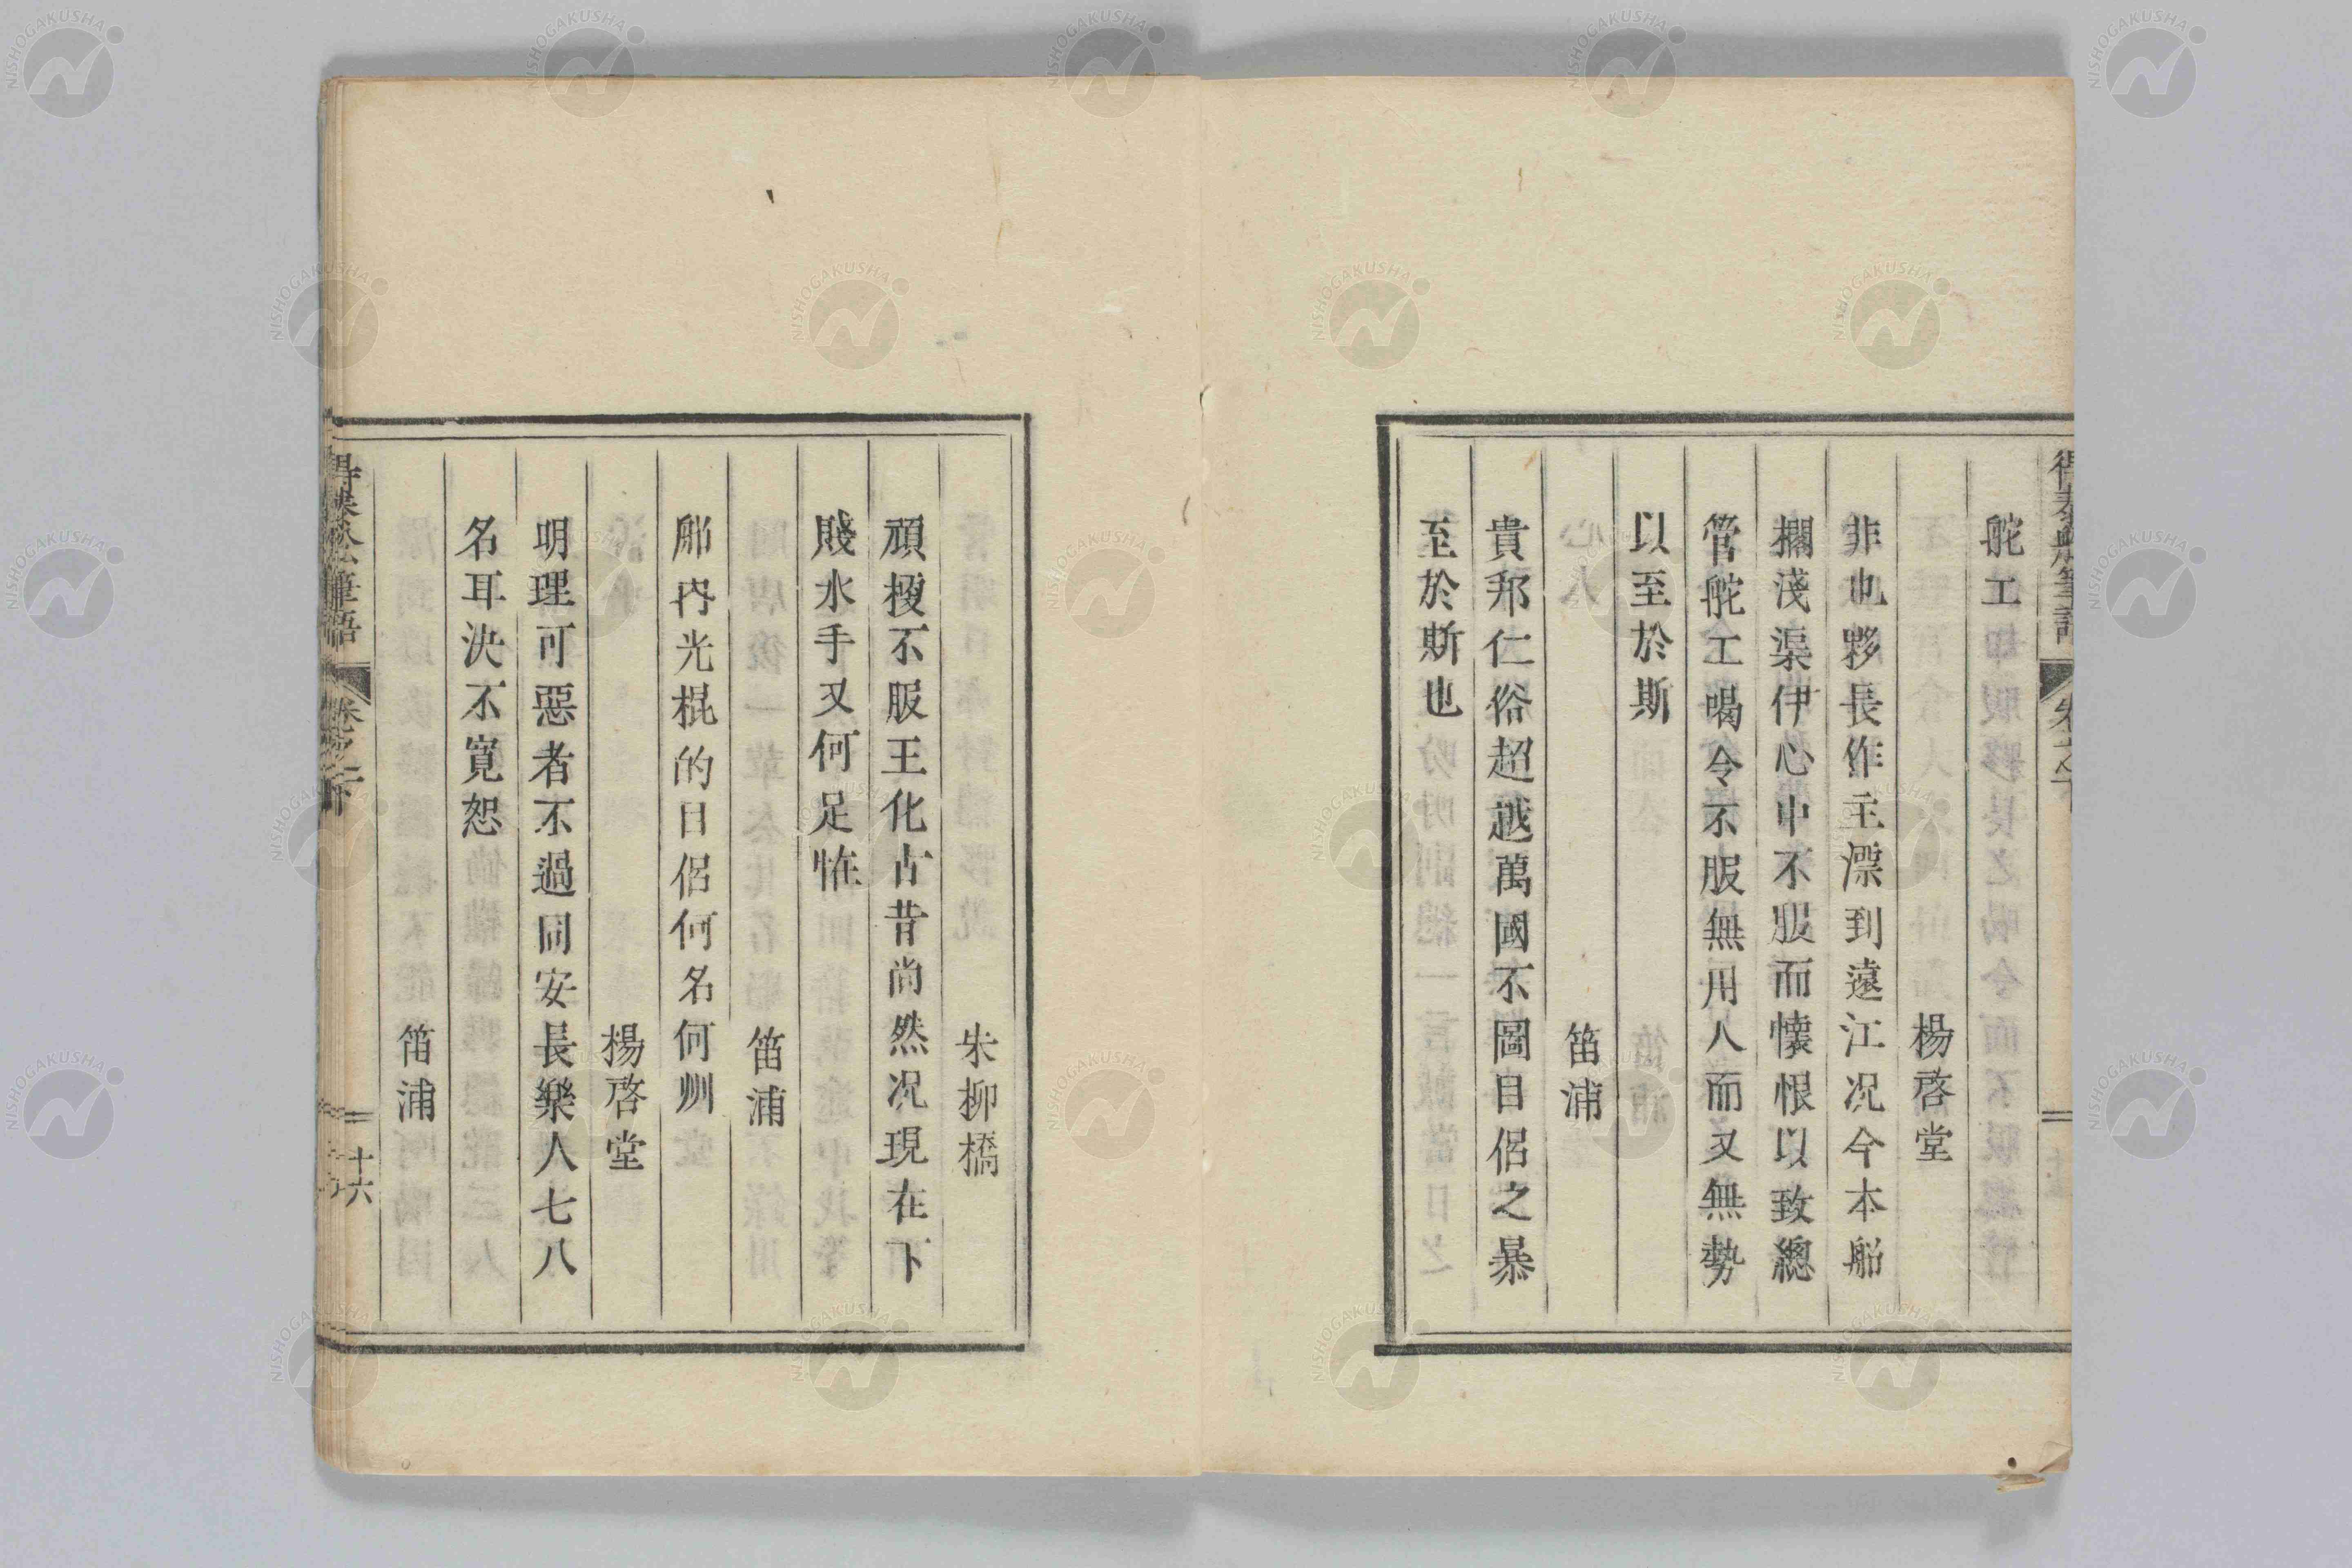 舵工
楊啓堂
非也夥長作主漂到遠江况今本船
擱淺渠伊心中不服而懷恨以致總
管舵工喝令不服無用人而又無勢
以至於斯
笛浦
貴邦仁俗超越萬國不圖目侶之暴
至於斯也
朱柳橋
頑梗不服王化古昔尚然况現在下
賤水手又何足恠
笛浦
那內光棍的目侶何名何州
楊啓堂
明理可惡者不過同安長樂人七八
名耳決不寬恕
笛浦
得泰船筆語
卷之二下
十六
NISHOGAKUSHA